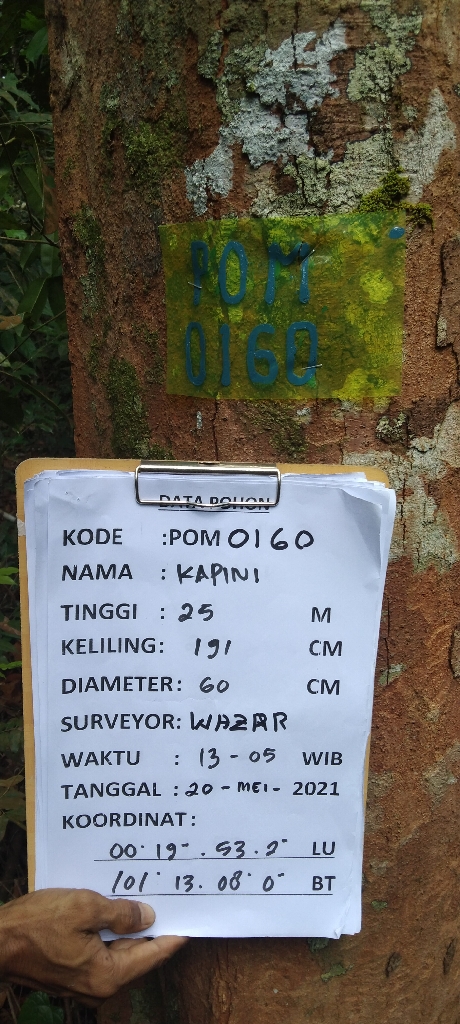 POM
0160
DATA POHON
KODE :POM 0160
NAMA : KAPINI
TINGGI : 25 M
KELILING: 191 CM
DIAMETER: 60 CM
SURVEYOR: WAZAR
WAKTU : 13-05 WIB
TANGGAL : 20-MEI-2021
KOORDINAT:
00° 19". 53.2" LU
101° 13. 08° 0" BT